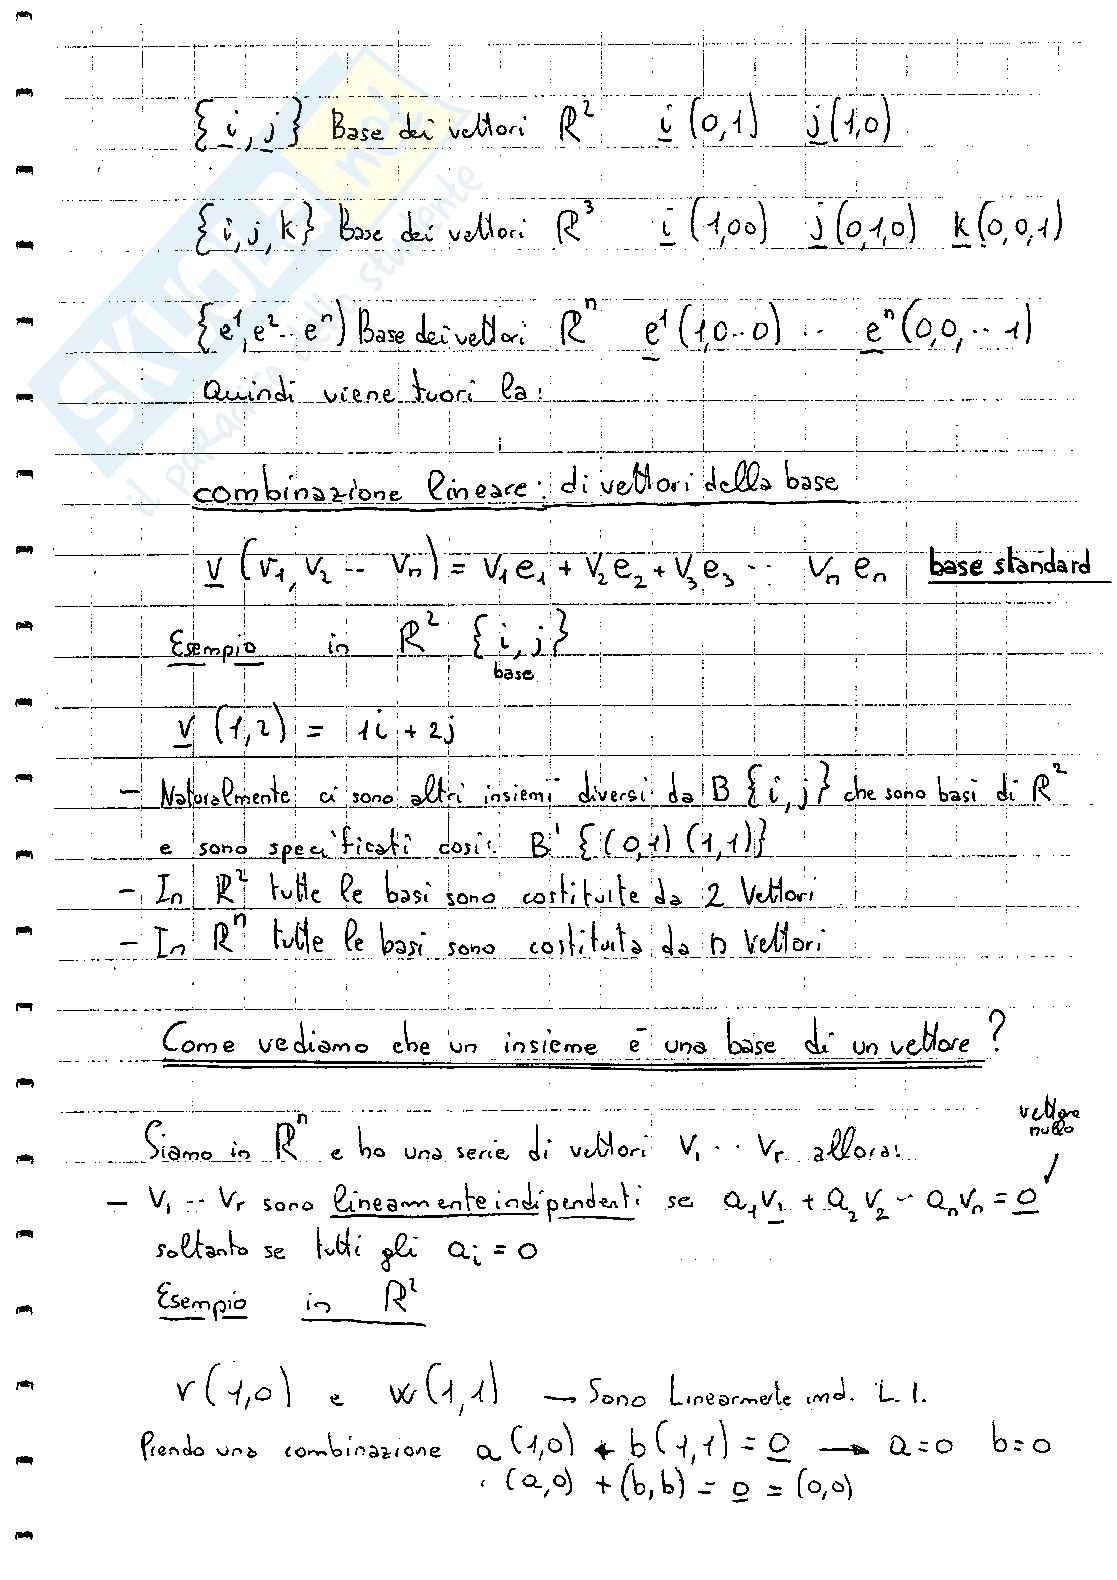 {i, j} Base dei vettori ℝ² i (0,1) j (1,0)
{i, j, k} Base dei vettori ℝ³ i (1,00) j (0,1,0) k (0,0,1)
{e¹, e² -- eⁿ) Base dei vettori ℝⁿ e¹ (1,0--0) -- eⁿ (0,0,--1)
Quindi viene fuori la:
combinazione lineare: di vettori della base
v (v₁, v₂ -- vₙ) = v₁e₁ + v₂e₂ + v₃e₃ -- vₙeₙ base standard
Esempio in ℝ² {i, j}
base
v (1,2) = 1i + 2j
- Naturalmente ci sono altri insiemi diversi da B {i, j} che sono basi di ℝ²
e sono specificati così: B' {(0,1) (1,1)}
- In ℝ² tutte le basi sono costituite da 2 Vettori
- In ℝⁿ tutte le basi sono costituita da n vettori
Come vediamo che un insieme è una base di un vettore?
vettore
nullo
Siamo in ℝⁿ e ho una serie di vettori v₁ -- vᵣ allora:
- v₁ -- vᵣ sono lineamente indipendenti se a₁v₁ + a₂v₂ -- aₙvₙ = 0
soltanto se tutti gli aᵢ = 0
Esempio in ℝ²
v (1,0) e w (1,1) → Sono Linearmete ind. L.I.
Prendo una combinazione a (1,0) + b (1,1) = 0 → a=0 b=0
(a,0) + (b,b) = 0 = (0,0)
SKUOLA.net
il paradiso dello studente